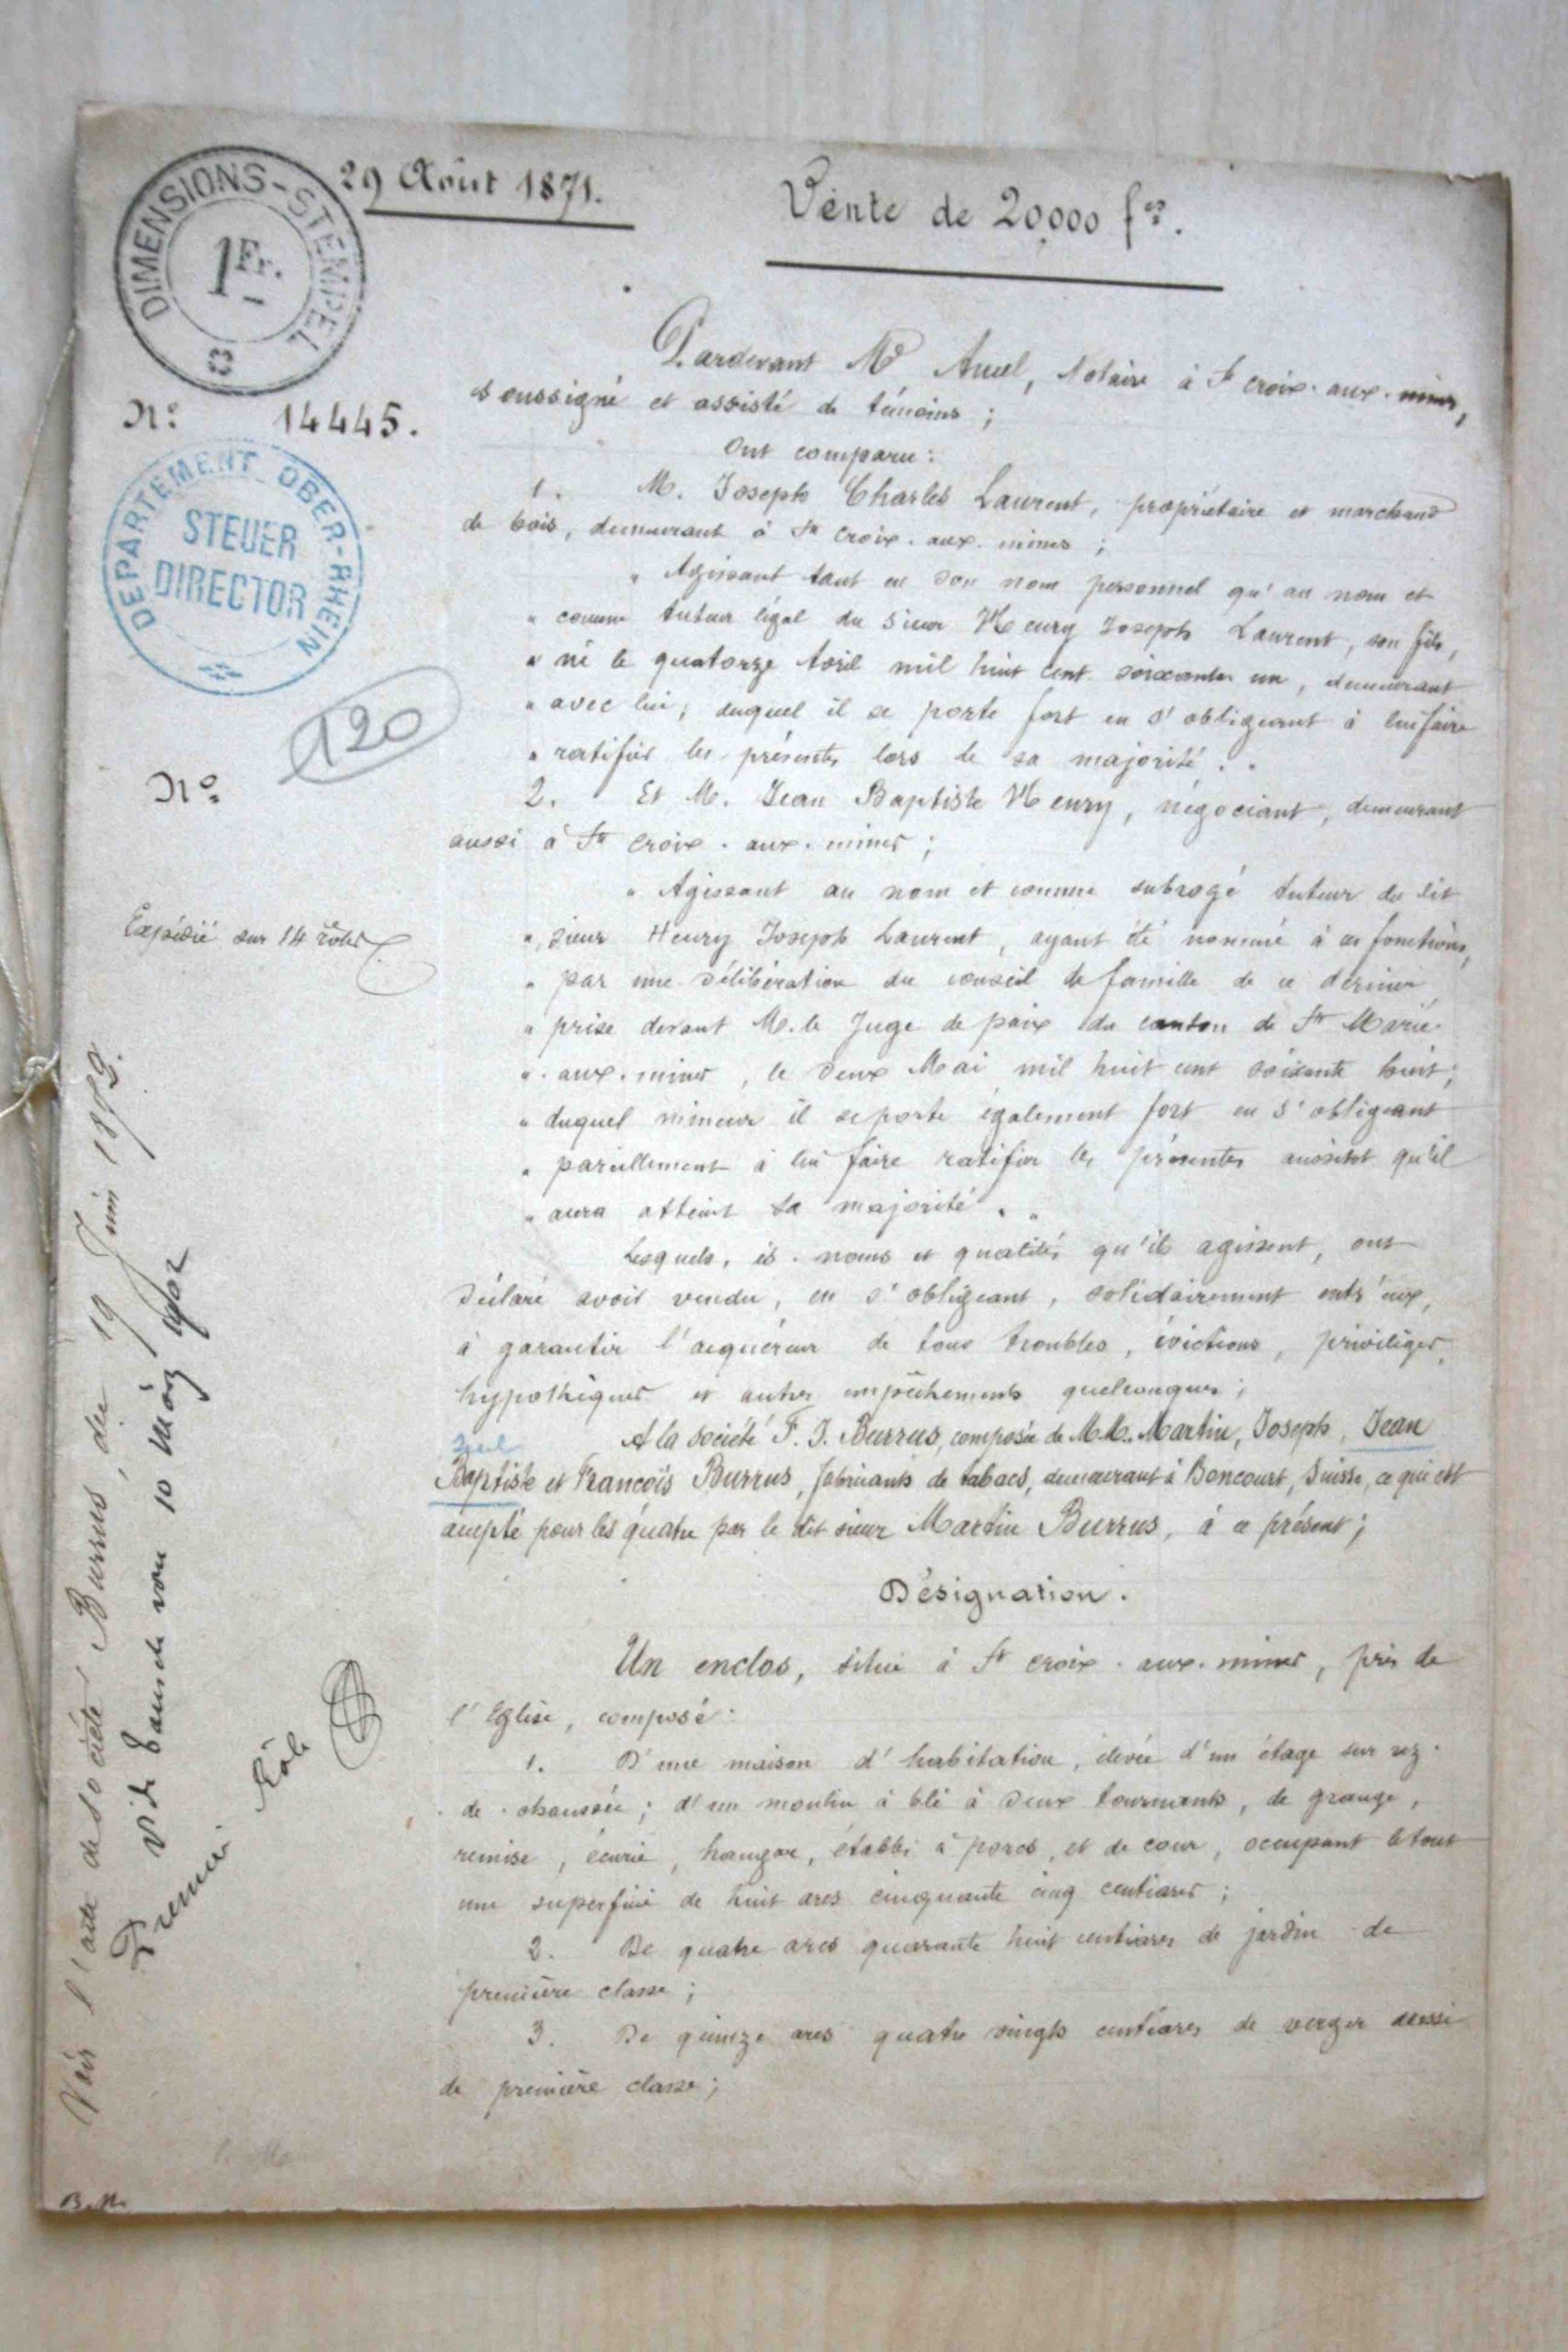 29 Août 1871.
Vente de 20,000 frs.
DIMENSIONS-STEMPEL
1 Fr.
No: 14445.
DEPARTEMENT OBER-RHEIN
STEUER
DIRECTOR
120
No
Expédié sur 14 rôles
Pardevant Me Notaire à Ste croix. aux. mines,
soussigné et assisté de témoins ;
Ont comparu :
1. M. Joseph Charles Laurent, propriétaire et marchand
de bois, demeurant à Ste croix. aux. mines ;
" Agissant tant en son nom personnel qu'au nom et
" comme tuteur légal du sieur Henry Joseph Laurent, son fils,
" né le quatorze Avril mil huit cent soixante un, demeurant
" avec lui ; duquel il se porte fort en s'obligeant à lui faire
" ratifier les présentes lors de sa majorité. "
2. Et M. Jean Baptiste Henry, négociant, demeurant
aussi à Ste croix. aux. mines ;
" Agissant au nom et comme subrogé tuteur du dit
" sieur Henry Joseph Laurent, ayant été nommé à ces fonctions,
" par une délibération du conseil de famille de ce dernier
" prise devant M. le Juge de paix du canton de Ste Marie.
" aux. mines, le deux Mai mil huit cent soixante huit ;
" duquel mineur il se porte également fort en s'obligeant
" pareillement à lui faire ratifier les présentes aussitot qu'il
" aura atteint sa majorité. "
Lesquels, ès. noms et qualités qu'ils agissent, ont
déclaré avoir vendu, en s'obligeant, solidairement entr'eux,
à garantir l'acquéreur de tous troubles, évictions, privilèges,
hypothèques et autres empêchements quelconques ;
A la société F. J. Burrus, composée de M.M. Martin, Joseph, Jean
Baptiste et François Burrus, fabricants de tabacs, demeurant à Boncourt, Suisse, ce qui est
accepté pour les quatre par le dit sieur Martin Burrus, à ce présent ;
Désignation.
Un enclos, situé à Ste croix. aux. mines, près de
l'Eglise, composé :
1. D'une maison d'habitation, élevée d'un étage sur rez.
de. chaussée ; d'un moulin à blé à deux tournants, de grange,
remise, écurie, hangar, étables à porcs, et de cour, occupant le tout
une superficie de huit ares cinquante cinq centiares ;
2. De quatre ares quarante huit centiares de jardin de
première classe ;
3. De quinze ares quatre vingts centiares de verger aussi
de première classe ;
Voir l'acte de société Burrus, du 19 Juin 1873.
von 10 März 1902
Premier Rôle
B.M.